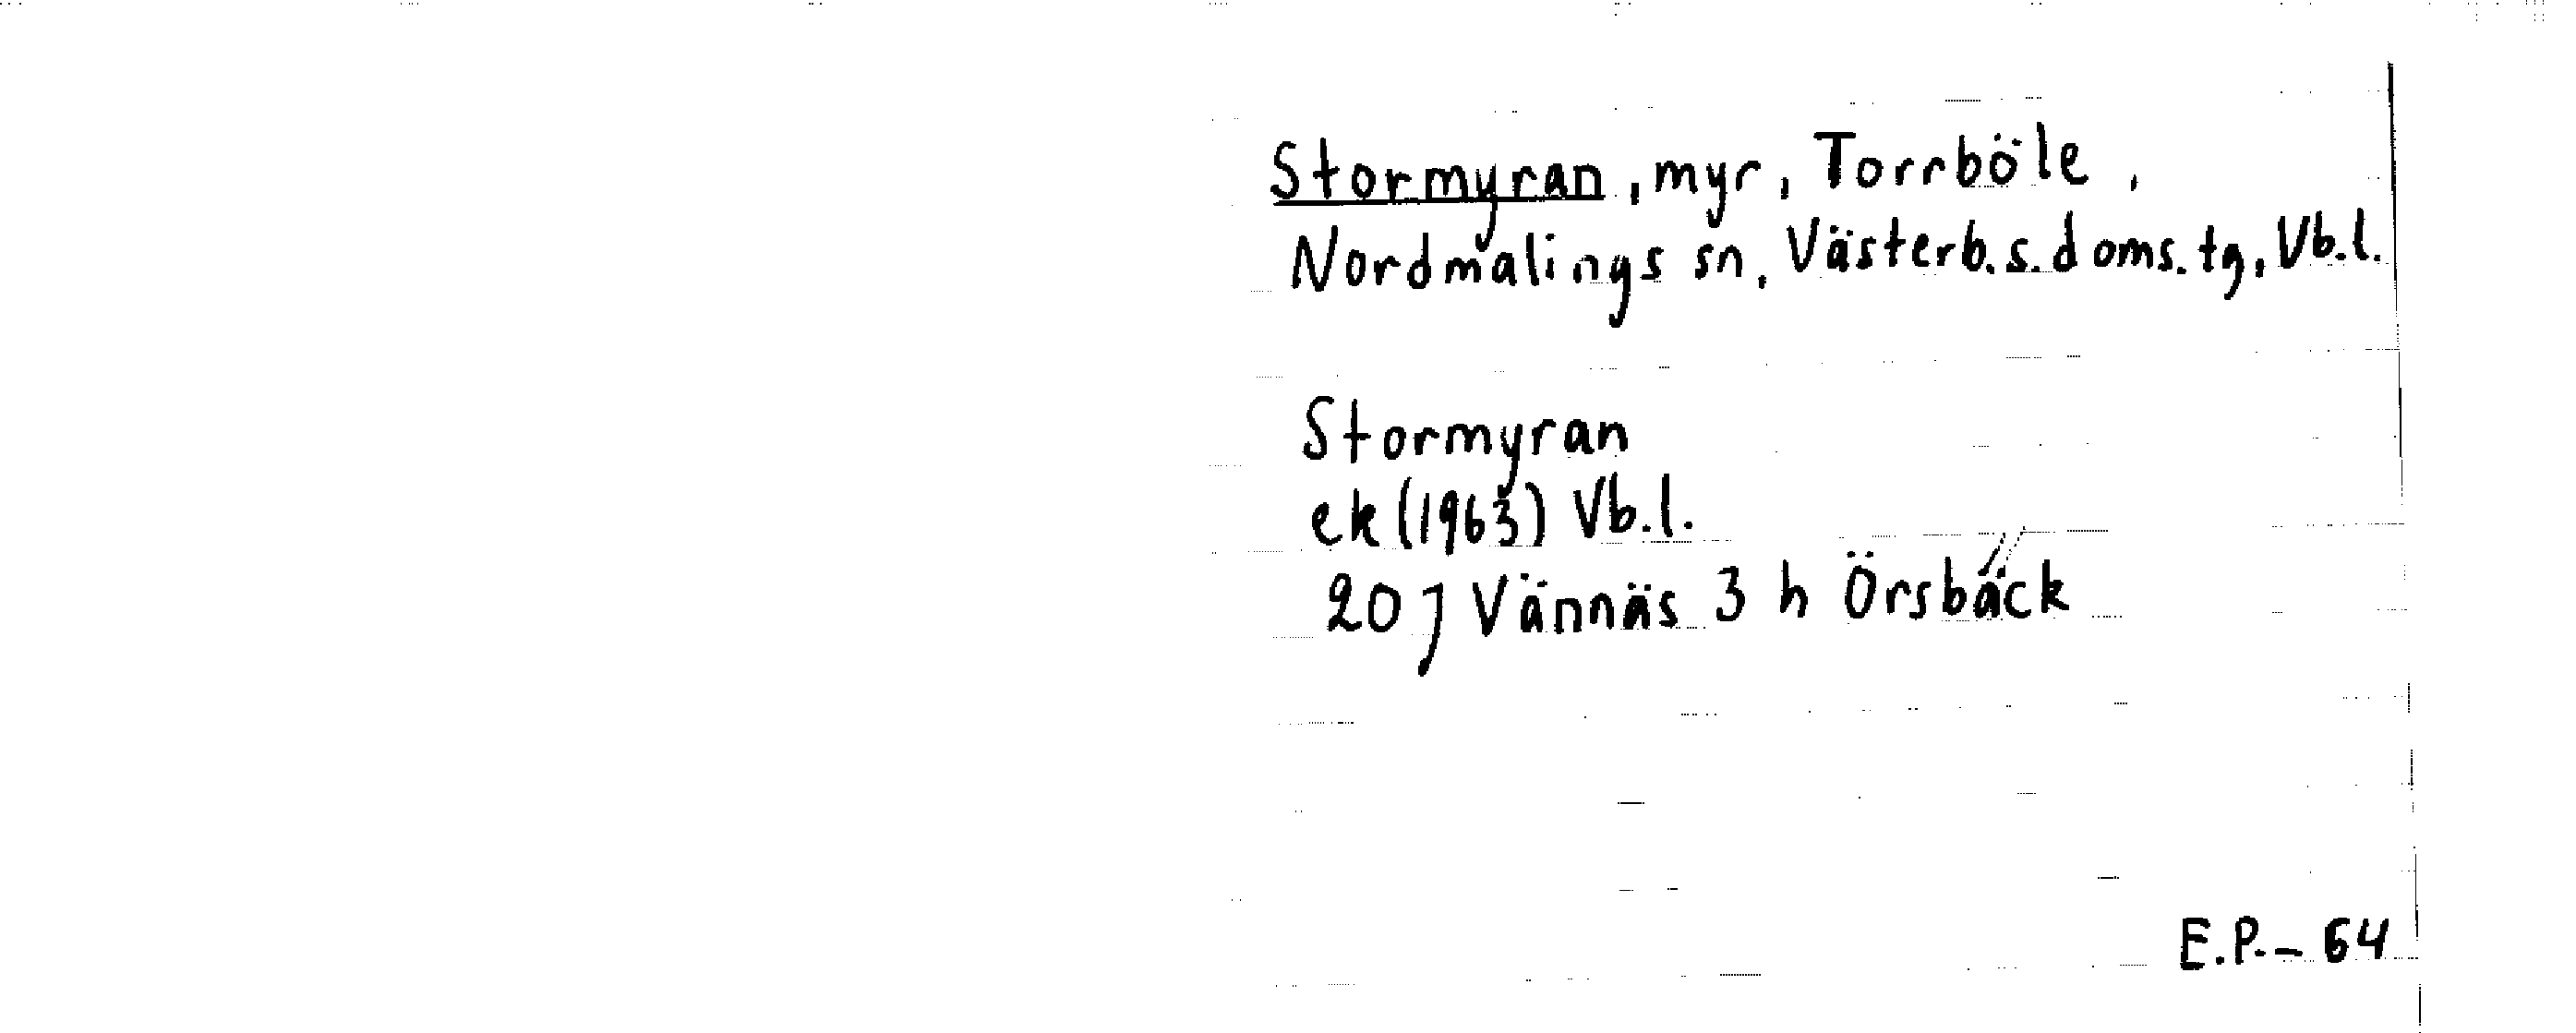 Stormyran, myr, Torrböle,
Nordmalings sn, Västerb.s.doms.tg, Vb.l.
Stormyran
ek (1963) Vb.l.
20 J Vännäs 3 h Örsbäck
E.P. - 64